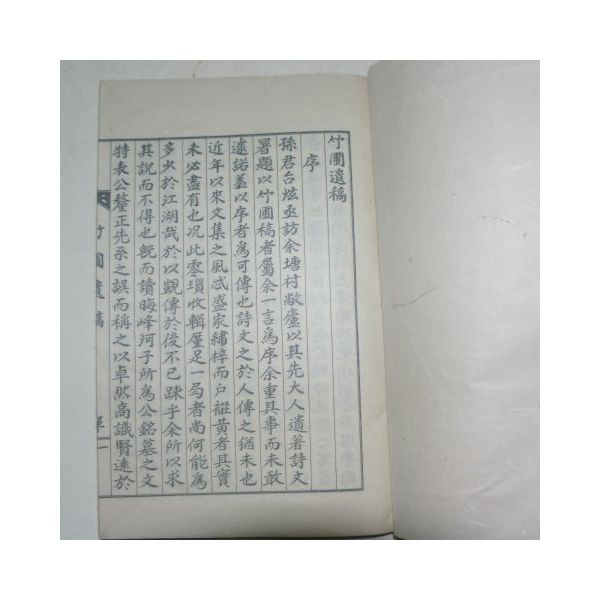 竹圃遺稿
序
孫君台炫丞訪余塘村敝廬以其先大人遺著詩文
署題以竹圃稿者屬余一言爲序余重其事而未敢
遽諾盖以序者爲可傳也詩文之於人傳之猶未也
近年以來文集之風甙盛家繡梓而户褫黄者其實
未必盡有也况此零瑣收輯厪足一局者尚何能爲
多少於江湖哉於以觀傳於後不已踈乎余所以求
其説而不得也旣而讀晦峰河子所爲公銘墓之文
特表公釐正先系之誤而稱之以卓然高識賢遠於
竹圃遺稿
一